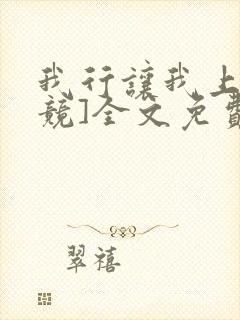 我行讓我上
競]全文免費
翠禧